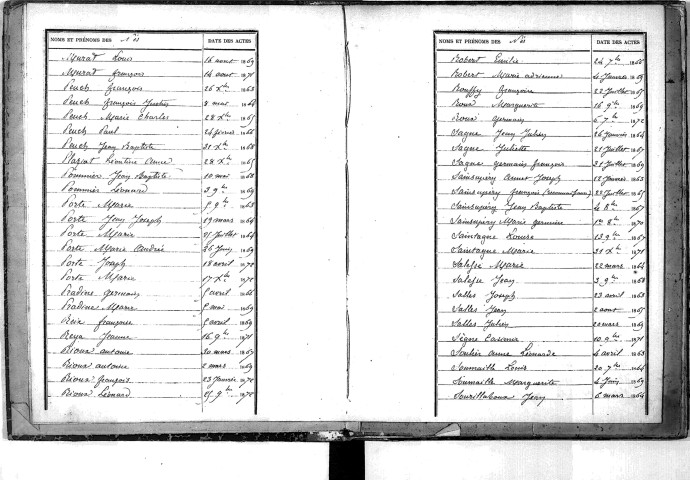 NOMS ET PRÉNOMS DES Nés DATE DES ACTES
Murat Louis 16 aout 1869
Murat françois 14 aout 1871
Puech françois 26 Xbre 1863
Puech françois 8 mai 1864
Puech Marie Charles 28 Xbre 1865
Puech Paul 24 février 1866
Puech Jean Baptiste 31 Xbre 1868
28 Xbre 1865
Pommier Jean Baptiste 10 mai 1868
Pommier Léonard 3 9bre 1869
Porte Marie 9bre 1863
Porte Jean Joseph 19 mars 1864
Porte Marie Juillet 1864
Porte Marie 26 Juin 1869
Porte Joseph 18 avril 1872
Porte Marie 17 Xbre 1872
Pradine germain avril 1866
Pradine Marie mai 1869
françoise avril 1869
Jeanne 16 9bre 1871
Rioux antoine 20 mars 1867
Rioux antoine 2 mars 1869
Rioux françois 23 Janvier 1872
Rioux Léonard 9bre 1872
NOMS ET PRÉNOMS DES Nés DATE DES ACTES
Robert Emilie 24 7bre 1866
Robert Marie adrienne 4 Janvier 1869
Bouffy françoise 22 Juillet 1867
Roux Marguerite 16 9bre 1869
Roux germain 6 7bre 1872
Sagne Jean Julien 26 Janvier 1864
Sagne Juliette 21 Juillet 1867
Sagne germain françois 31 Juillet 1869
Sainsupéry Joseph 12 Janvier 1863
Sainsupéry françois 22 Juillet 1865
Sainsupéry Jean Baptiste 4 8bre 1867
Sainsupéry Marie germaine 1er 8bre 1870
Saintagne Louise 13 9bre 1867
Saintagne Marie 31 Xbre 1871
Marie 22 mars 1864
Jean 3 9bre 1868
Salles Joseph 23 avril 1863
Salles Jean 2 aout 1867
Salles Julien 20 mars 1869
10 9bre 1871
Soulié anne Léonarde 4 avril 1863
Soumaille Louis 20 7bre 1864
Soumaille Marguerite 4 Juin 1869
Jean 6 mars 1864